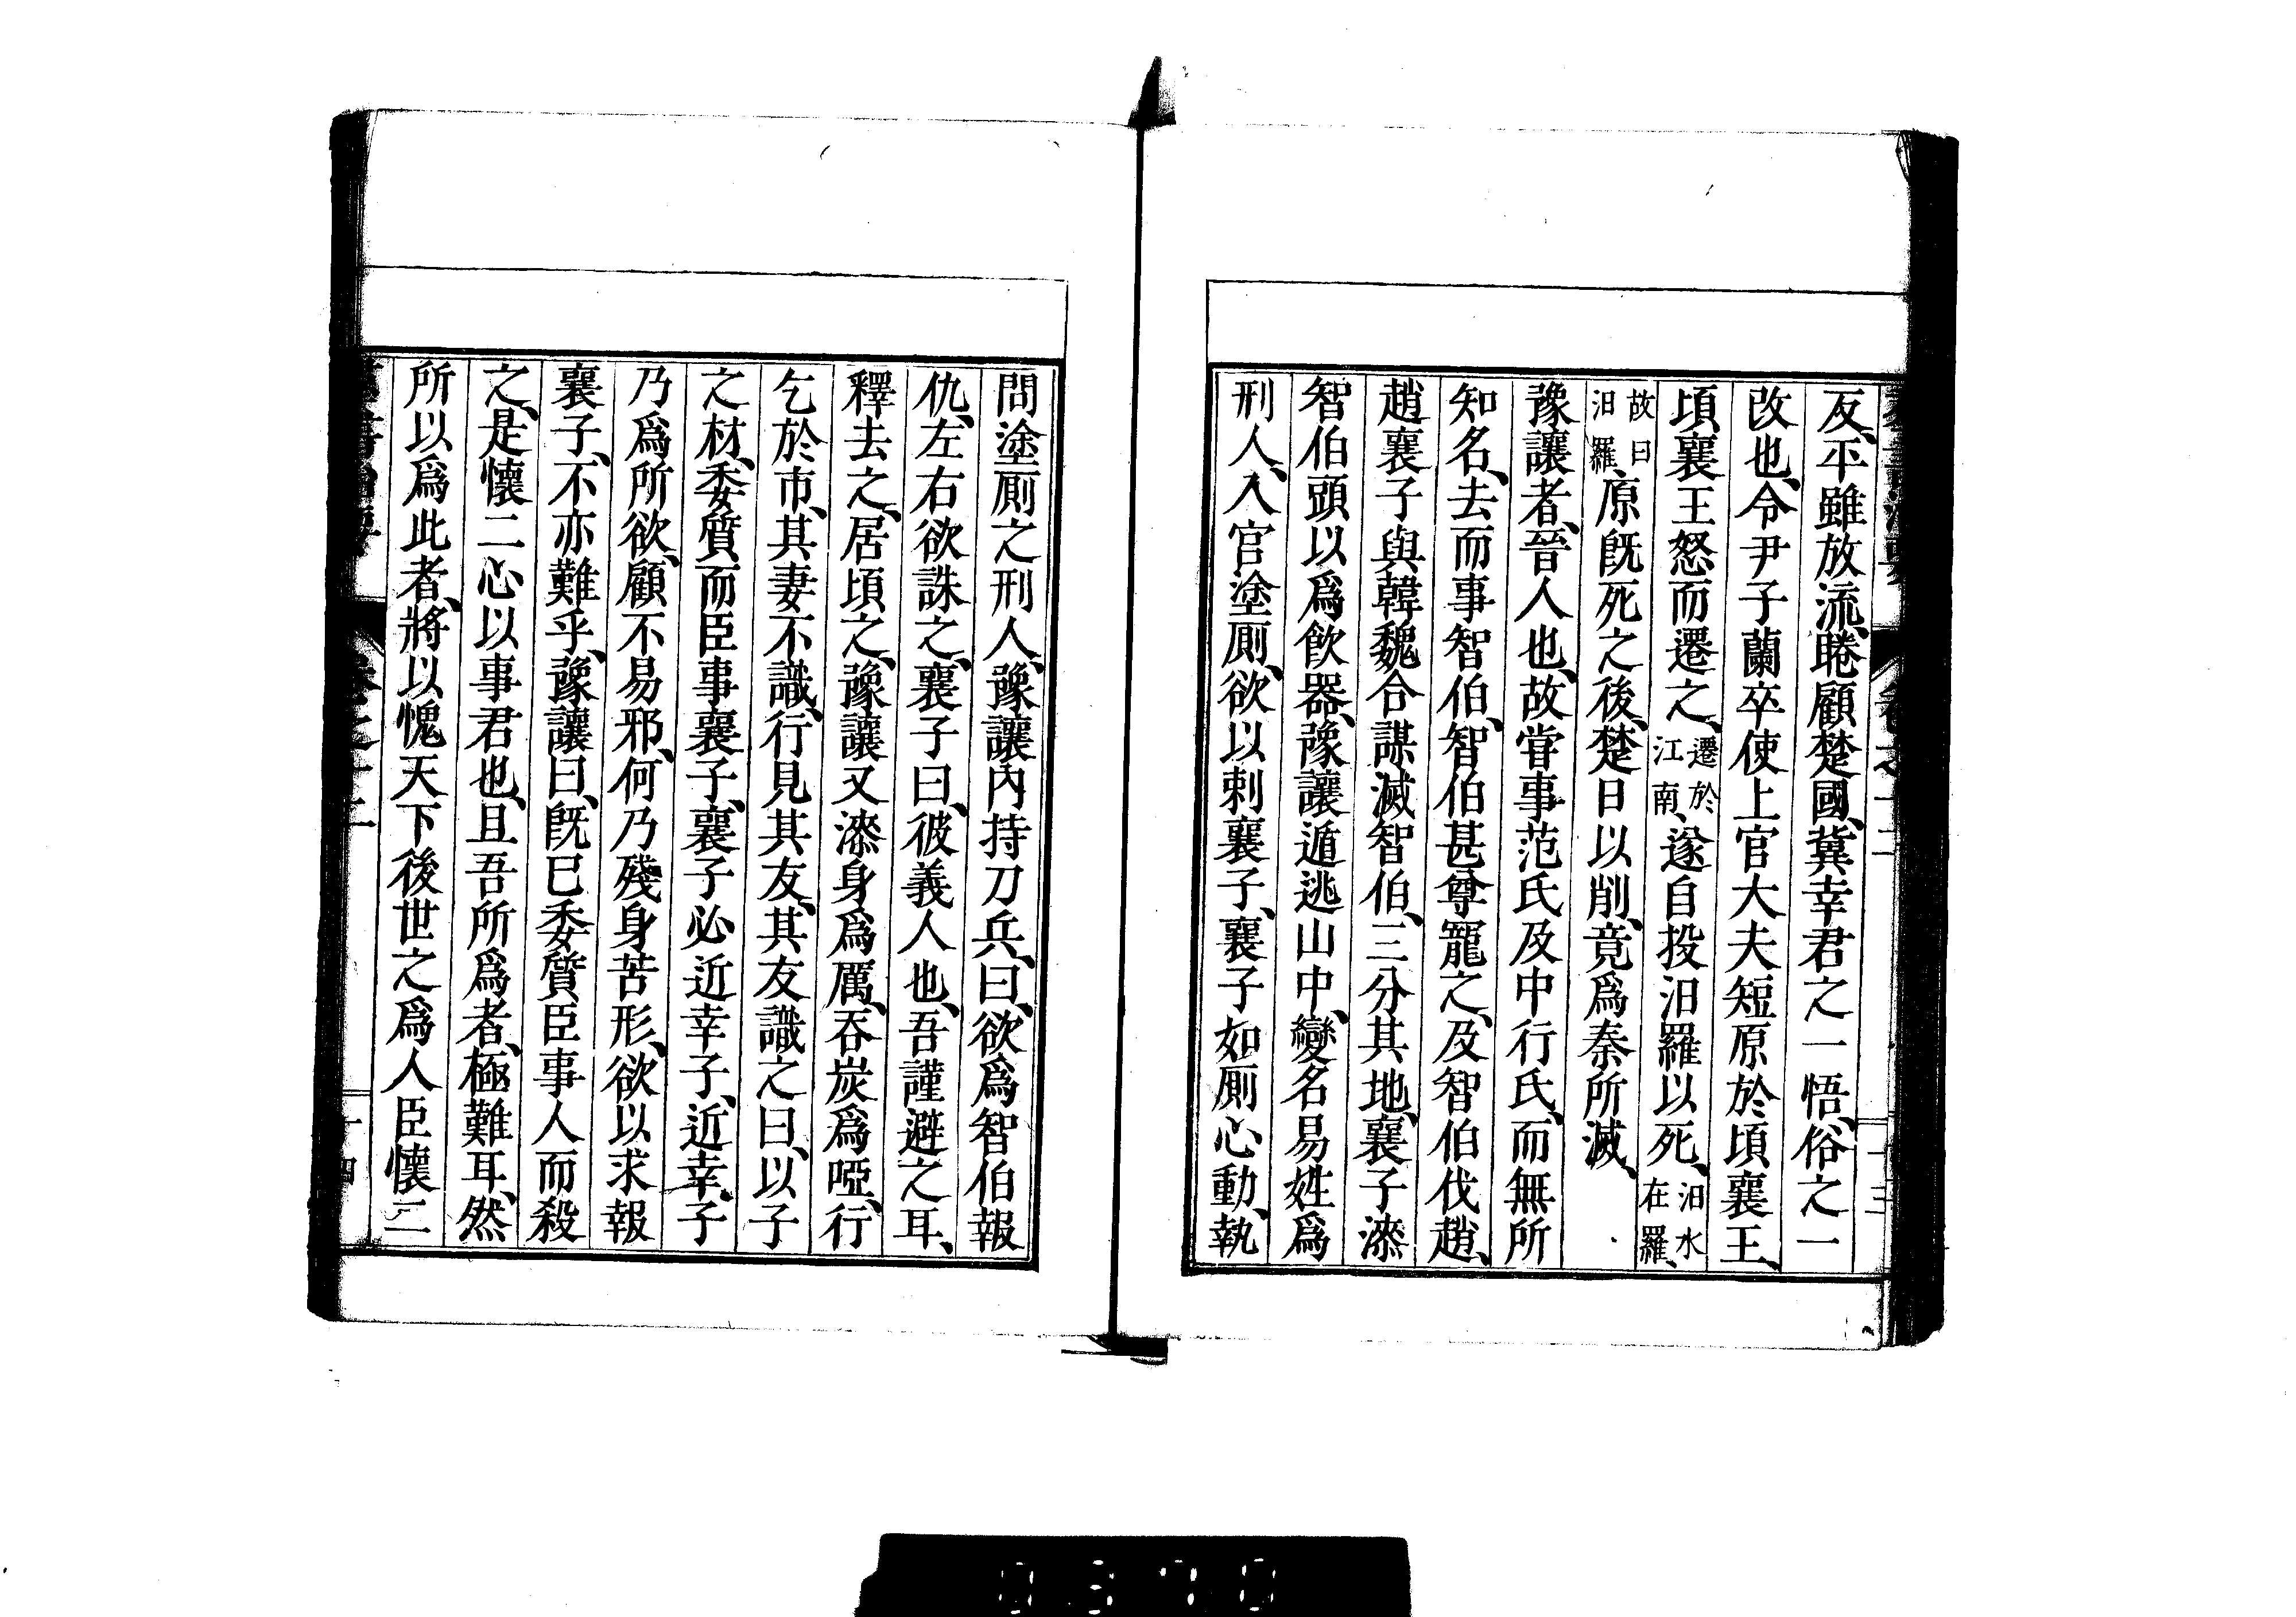 反、平雖放流、睠顧楚國、冀幸君之一悟、俗之一
改也、令尹子蘭卒使上官大夫短原於頃襄王、
頃襄王怒而遷之、遷於江南、遂自投汨羅以死、汨水在羅、
故曰汨羅、原旣死之後、楚日以削、竟爲秦所滅、
豫讓者、晉人也、故甞事范氏及中行氏、而無所
知名、去而事智伯、智伯甚尊寵之、及智伯伐趙、
趙襄子與韓魏合謀滅智伯、三分其地、襄子漆
智伯頭以爲飮器、豫讓遁逃山中、變名易姓爲
刑人、入官塗厠、欲以刺襄子、襄子如厠心動、執
問塗厠之刑人、豫讓內持刀兵、曰、欲爲智伯報
仇、左右欲誅之、襄子曰、彼義人也、吾謹避之耳、
釋去之、居頃之、豫讓又漆身爲厲、吞炭爲啞、行
乞於市、其妻不識、行見其友、其友識之曰、以子
之材、委質而臣事襄子、襄子必近幸子、近幸、子
乃爲所欲、顧不易邪、何乃殘身苦形、欲以求報
襄子、不亦難乎、豫讓曰、旣已委質臣事人而殺
之、是懷二心以事君也、且吾所爲者、極難耳、然
所以爲此者、將以愧天下後世之爲人臣懷二
0370